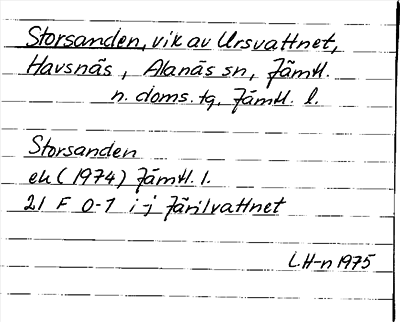 Storsanden, vik av Ursvattnet,
Havsnäs, Alanäs sn, Jämtl.
n. doms. tg. Jämtl. l.
Storsanden
ek (1974) Jämtl. l.
21 F 0-1 i-j Järilvattnet
LH-n 1975